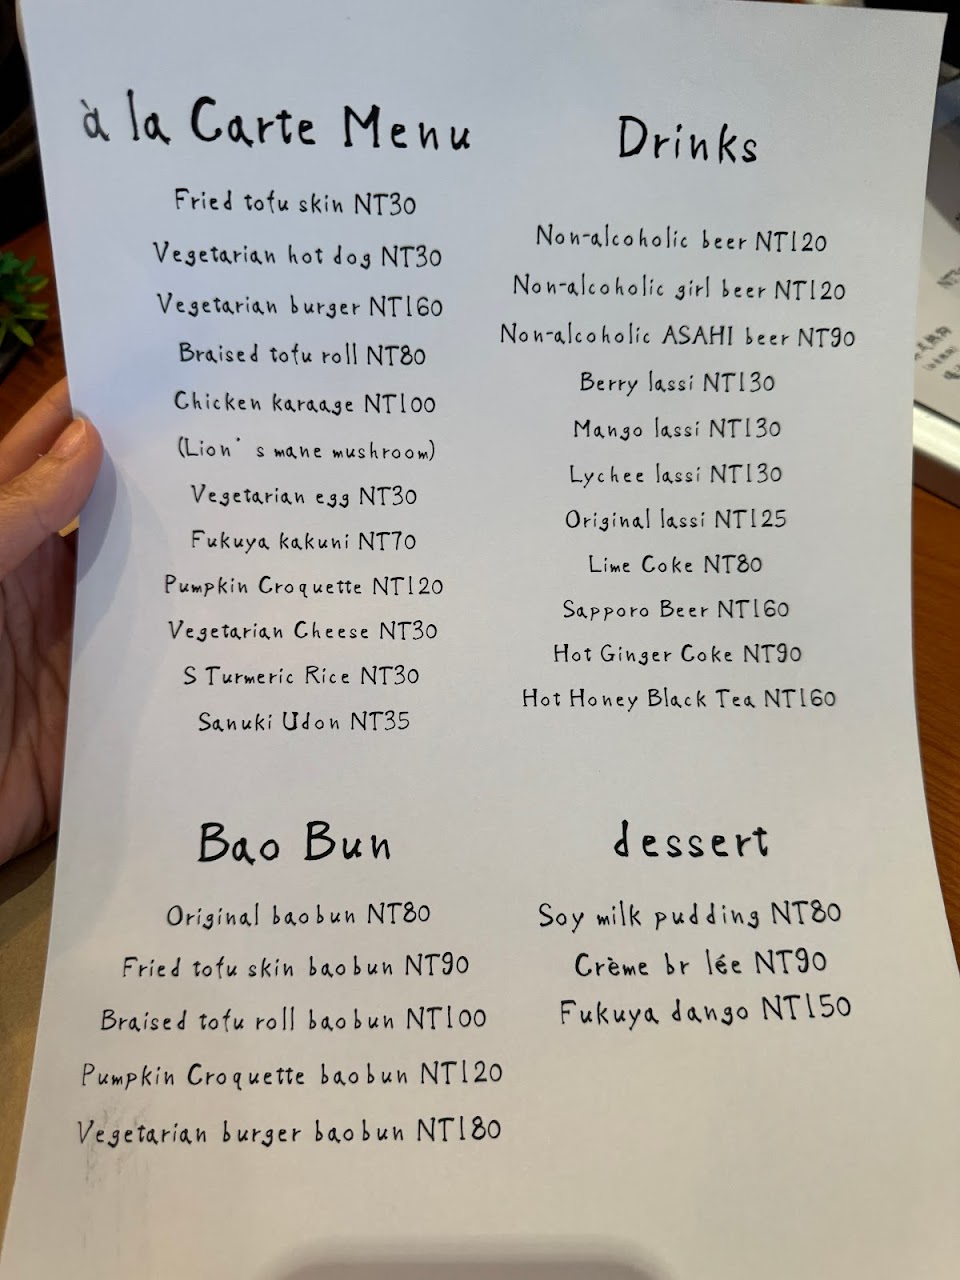 à la Carte Menu
Fried tofu skin NT30
Vegetarian hot dog NT30
Vegetarian burger NT160
Braised tofu roll NT80
Chicken karaage NT100
(Lion's mane mushroom)
Vegetarian egg NT30
Fukuya kakuni NT70
Pumpkin Croquette NT120
Vegetarian Cheese NT30
S Turmeric Rice NT30
Sanuki Udon NT35
Drinks
Non-alcoholic beer NT120
Non-alcoholic girl beer NT120
Non-alcoholic ASAHI beer NT90
Berry lassi NT130
Mango lassi NT130
Lychee lassi NT130
Original lassi NT125
Lime Coke NT80
Sapporo Beer NT160
Hot Ginger Coke NT90
Hot Honey Black Tea NT160
Bao Bun
Original bao bun NT80
Fried tofu skin bao bun NT90
Braised tofu roll bao bun NT100
Pumpkin Croquette bao bun NT120
Vegetarian burger bao bun NT180
dessert
Soy milk pudding NT80
Crème br lée NT90
Fukuya dango NT150